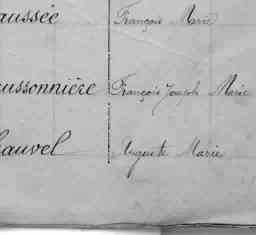 aussée François Marie
ussonnière François Joseph Marie
hauvel Auguste Marie